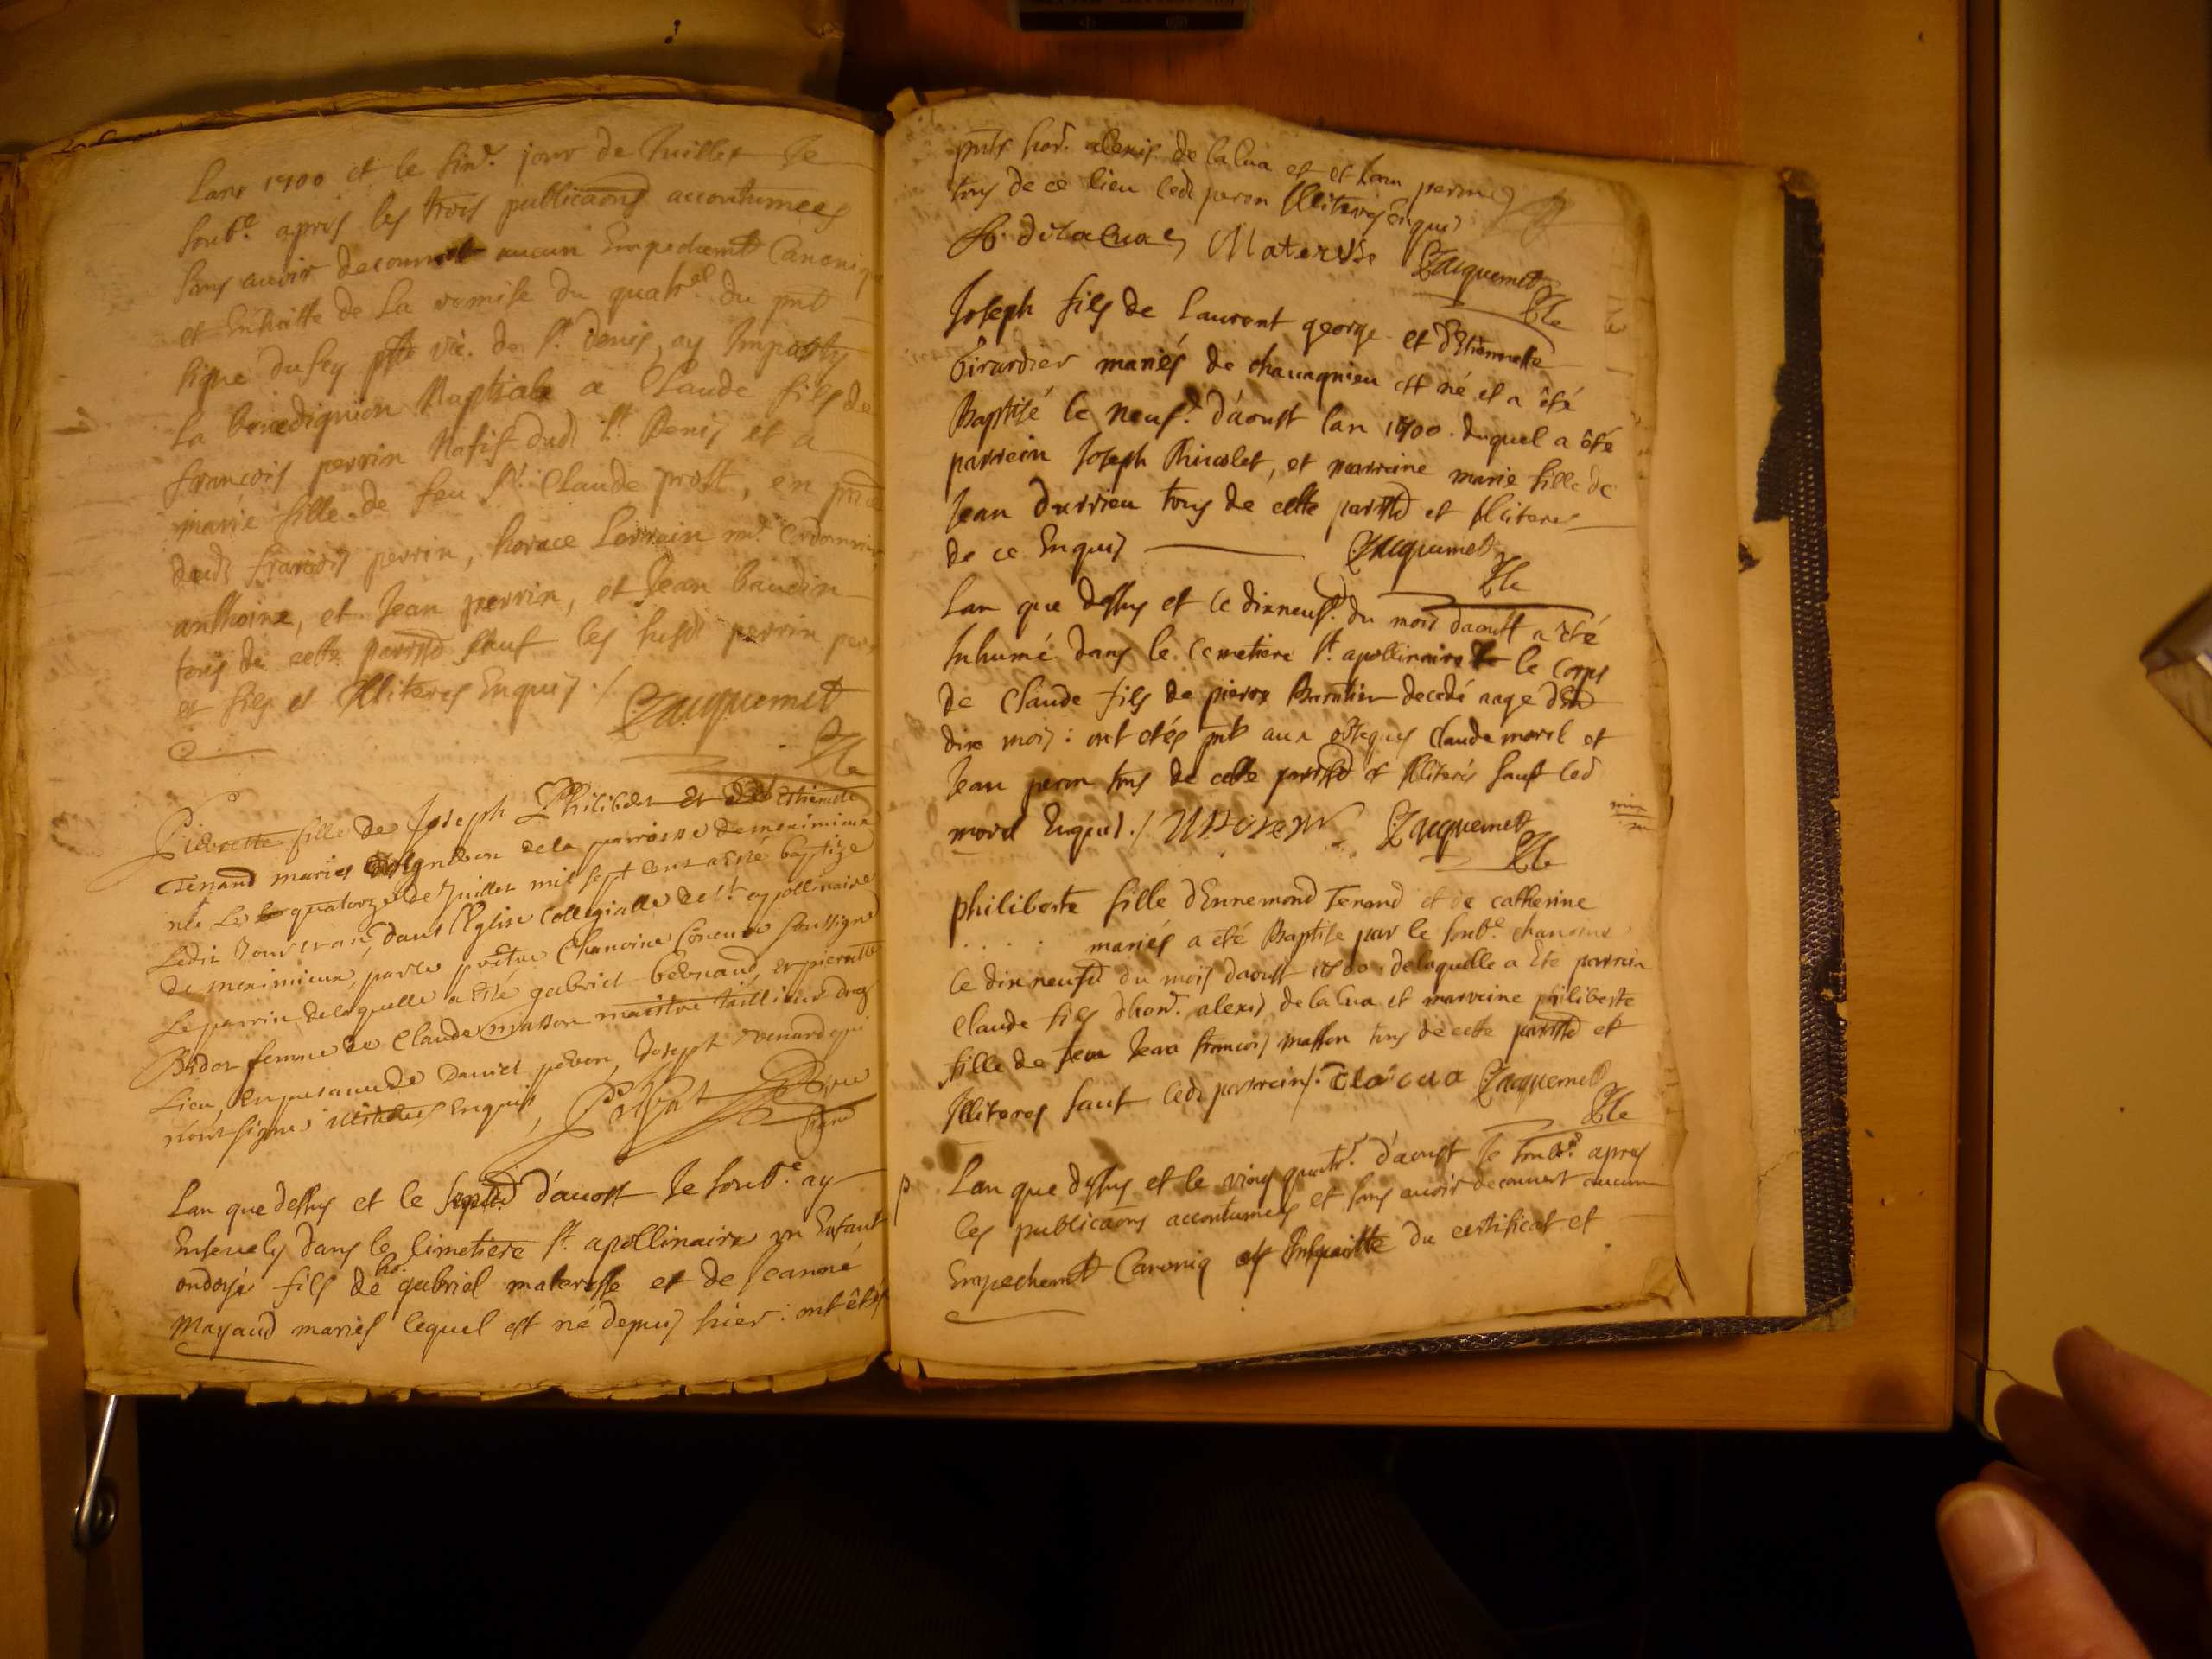 Lan 1700 et le sixe. jour de Juillet Je
soub.e apres les trois publicaons accoutumees
sans auoir decouuert aucun Empechemt Canoniq
et Ensuitte de La remise du du pnt
signe dufey ptre vic. de St. denis, ay Imparty
la benedignion Nuptiale a Claude fils de
françois perrin Natif dud. St. Denis et a
marie fille de feu Sr. Claude prost, en
dud. françois perrin, horace Lorrain
anthoine, et Jean perrin, et Jean baudin
tous de cette parroisse sauf les susd. perrin
et fils et Illiteres Enquis ./. Jacquemet
Pierrette fille de Joseph Philibert et Ethiennette
Tenand maries de la parroisse de meximieux
née Le quatorze de Juillet mil sept cens a esté baptize
Ledit Jour dans l'Eglise Collegialle de St. appollinaire
de meximieux, par le prêtre Chanoine soussigné
Le parrin de laquelle a esté gabriel bernand, et pierrette
Bidon femme de Claude masson maistre taillieur
Lieu, En presance de Daniel peron, Joseph renard qui
n'ont signé illiteres Enquis,
Lan que dessus et le sept.e d'aoust Je soub.e ay
Enseuely dans le Cimetiere St. apollinaire un Enfant
ondoyé fils de ho. gabriel materosse et de Jeanne
Mayaud mariés lequel est né depuis hier : ont êtés
pnts hon. alexis de la Cua et et Jean peron
tous de ce lieu led. peron Illiteres Enquis
A. delacua Materosse Jacquemet
Joseph fils de Laurent george et d'Etiennette
Girardier mariés de chauagnieu est né et a été
Baptisé le neuf.e d'aoust lan 1700. duquel a été
parrein Joseph et marreine marie fille de
Jean Durrieu tous de cette parroisse et Illiteres
de ce Enquis Jacquemet
Lan que dessus et le dixneuf.e du mois daoust a été
Inhumé dans le Cemetiere St. apollinaire le Corps
de Claude fils de pierre decedé aage d'En.
dix mois : ont etés pnts aux obseques Claude morel et
Jean peron tous de cette parroisse et Illiterés sauf led.
morel Enquis ./. Morel Jacquemet
philiberte fille d'Ennemond Tenand et de catherine
. . . . mariés a été Baptise par le soub.e chanoine
le dixneufe du mois daoust 1700. de laquelle a Eté parrein
Claude fils d'hon. alexis de la Cua et marreine philiberte
fille de Jean françois masson tous de cette parroisse et
Illiteres sauf led. parrein /. C la cua Jacquemet
p Lan que dessus et le vingt quatr.e d'aoust Je soub.e apres
les publicaons accoutumées et sans auoir decouuert aucun
Empechemt Canoniq et Ensuitte du certificat et